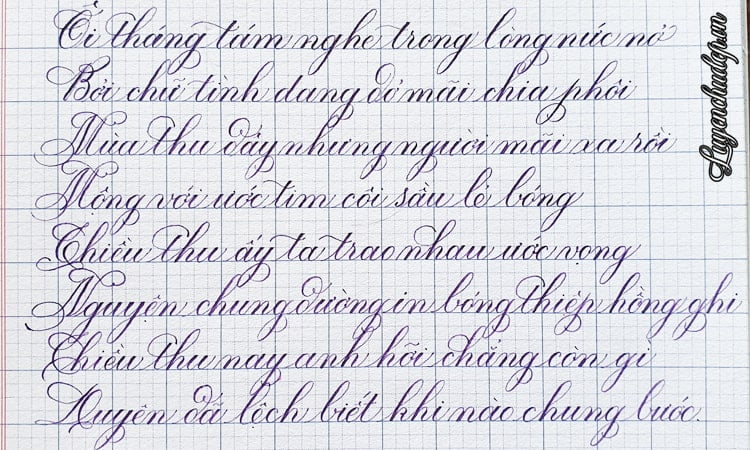 Ối tháng tám nghe trong lòng nức nở
Bởi chữ tình dang dở mãi chia phôi
Mùa thu đây nhưng người mãi xa rồi
Mộng với ước tim côi sầu lẻ bóng
Chiều thu ấy ta trao nhau ước vọng
Nguyện chung đường in bóng thiệp hồng ghi
Chiều thu nay anh hỡi chẳng còn gì
Duyên đã lệch biết khi nào chung bước.
Luyenchudep.vn